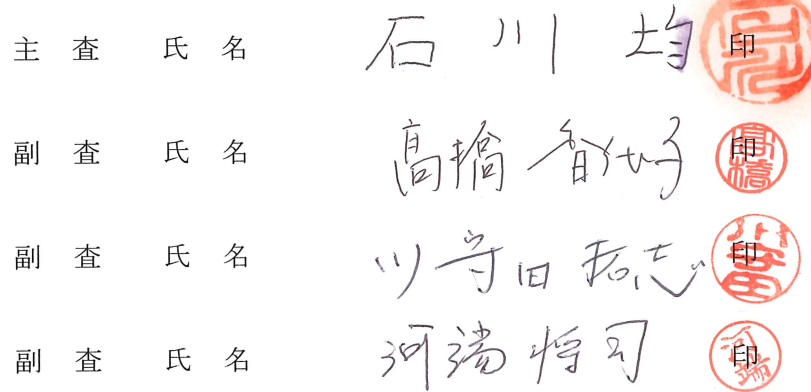 主査 氏名 石川 均 印
副査 氏名 高橋 智代子 印
副査 氏名 川守田 拓志 印
副査 氏名 河端 将司 印